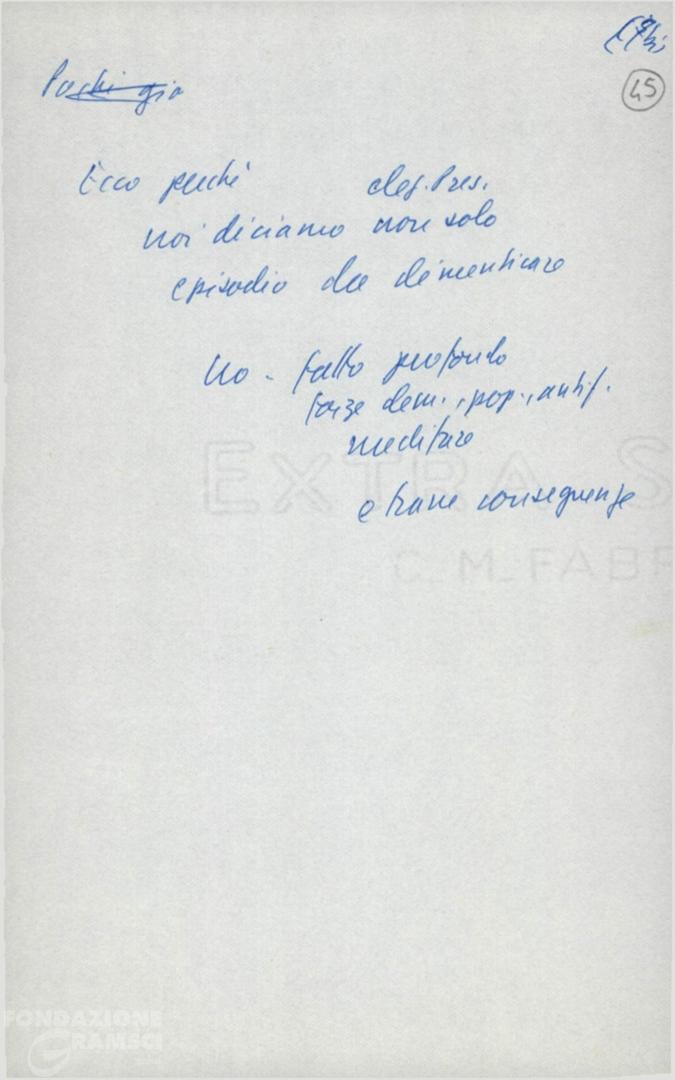 45
Ecco perché elez. Pres.
noi diciamo non solo
episodio da dimenticare
No - fatto profondo
forze dem., pop., antif.
meditare
e trarre conseguenze
EXTRA S
C. M. FABR
FONDAZIONE
GRAMSCI